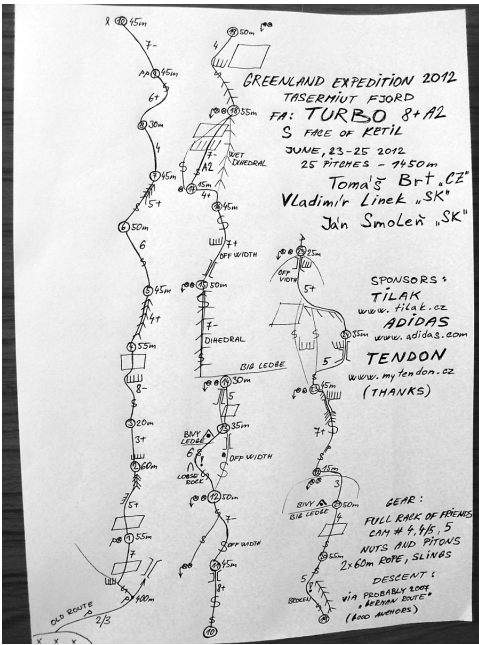 GREENLAND EXPEDITION 2012
TASERMIUT FJORD
FA: TURBO 8+A2
S FACE OF KETIL
JUNE, 23-25 2012
25 PITCHES - 1450m
Tomáš Brt „CZ"
Vladimír Linek „SK"
Ján Smoleň „SK"
SPONSORS:
TILAK
www.tilak.cz
ADIDAS
www.adidas.com
TENDON
www.mytendon.cz
(THANKS)
GEAR:
FULL RACK OF FRIENDS
CAM # 4, 4/5, 5
NUTS AND PITONS
2x60m ROPE, SLINGS
DESCENT:
VIA PROBABLY 2007
„GERMAN ROUTE"
(GOOD ANCHORS)
10 45m
7-
45m
6+
8 30m
4
7 45m
5+
6 50m
6
5 45m
4+
4 55m
8-
3 20m
3+
2 60m
5+
1 55m
7
400m
OLD ROUTE
2/3
50m
4
18 55m
WET
DIHEDRAL
7-
A2
17 15m
4+
16 45m
7+
OFF WIDTH
15 50m
7-
DIHEDRAL
BIG LEDGE
14 30m
5
13 35m
BIVY
LEDGE
6
8
OFF WIDTH
LOOSE
ROCK
12 50m
7-
OFF WIDTH
11 45m
8+
10
25m
OFF
WIDTH
5+
35m
5
45m
7+
15m
3
BIVY
50m
BIG LEDGE
4
55m
5
BROKEN